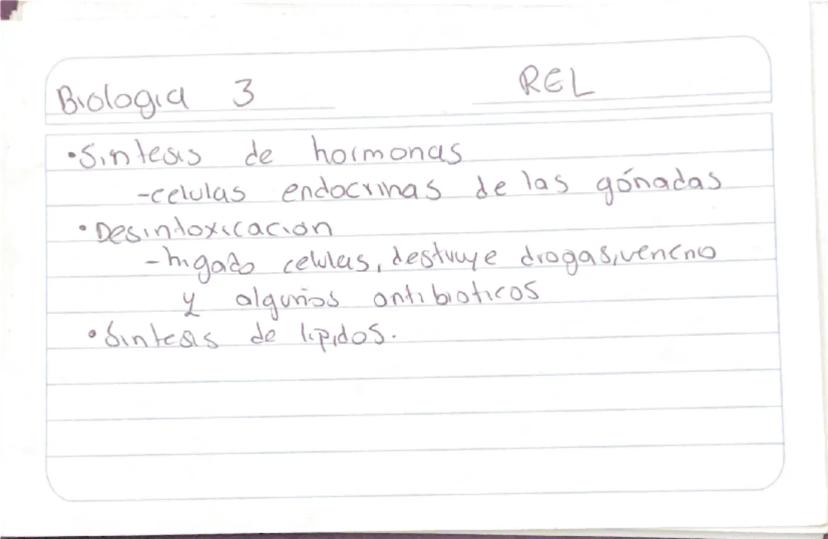 Biologia 3 REL
•Sintesis de hormonas
-celulas endocrinas de las gónadas
•Desintoxicacion
-higado celulas, destruye drogas, veneno
y algunos antibioticos
•Sintesis de lipidos.